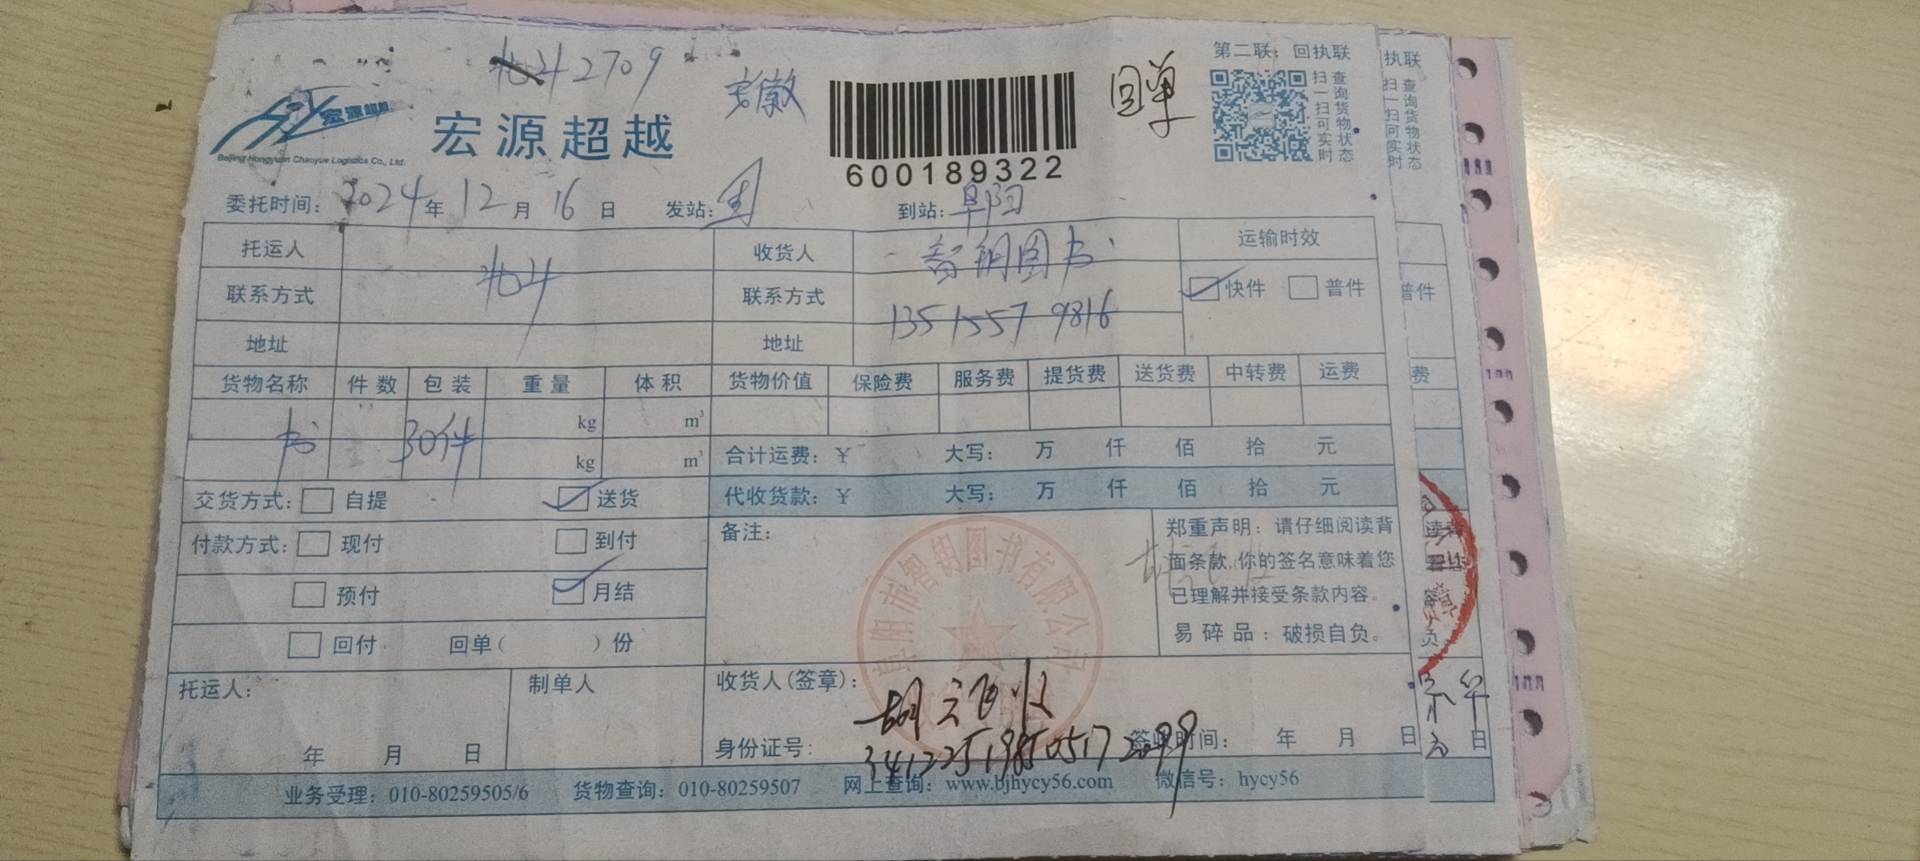 2709
安徽
回单
第二联：回执联
执联
扫一扫可实时
查询货物状态
宏源超越
Beijing Hongyuan Chaoyue Logistics Co., Ltd.
宏源超越
600189322
委托时间：2024年12月16日 发站： 到站：阜阳
托运人 收货人 智钥图书 运输时效
联系方式 联系方式 13515579816 快件 普件
普件
地址 地址
货物名称 件数 包装 重量 体积 货物价值 保险费 服务费 提货费 送货费 中转费 运费
费
书 30件 kg m³
kg m³
合计运费：¥ 大写： 万 仟 佰 拾 元
代收货款：¥ 大写： 万 仟 佰 拾 元
交货方式： 自提 送货
付款方式： 现付 到付
预付 月结
回付 回单( )份
备注：
郑重声明：请仔细阅读背
面条款，你的签名意味着您
已理解并接受条款内容。
易碎品：破损自负。
阜阳市智钥图书有限公司
托运人： 制单人 收货人(签章)：
年 月 日 身份证号： 签收时间： 年 月 日
日
业务受理：010-80259505/6 货物查询：010-80259507 网上查询：www.bjhycy56.com 微信号：hycy56